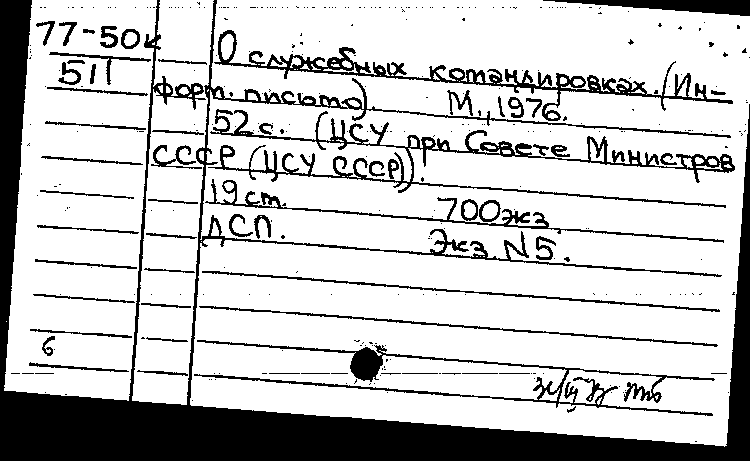 77-50к
511
О служебных командировках. (Ин-
форм. письмо). М., 1976.
52 с. (ЦСУ при Совете Министров
СССР (ЦСУ СССР)).
19 ст. 700 экз.
ДСП. Экз. N5.
6